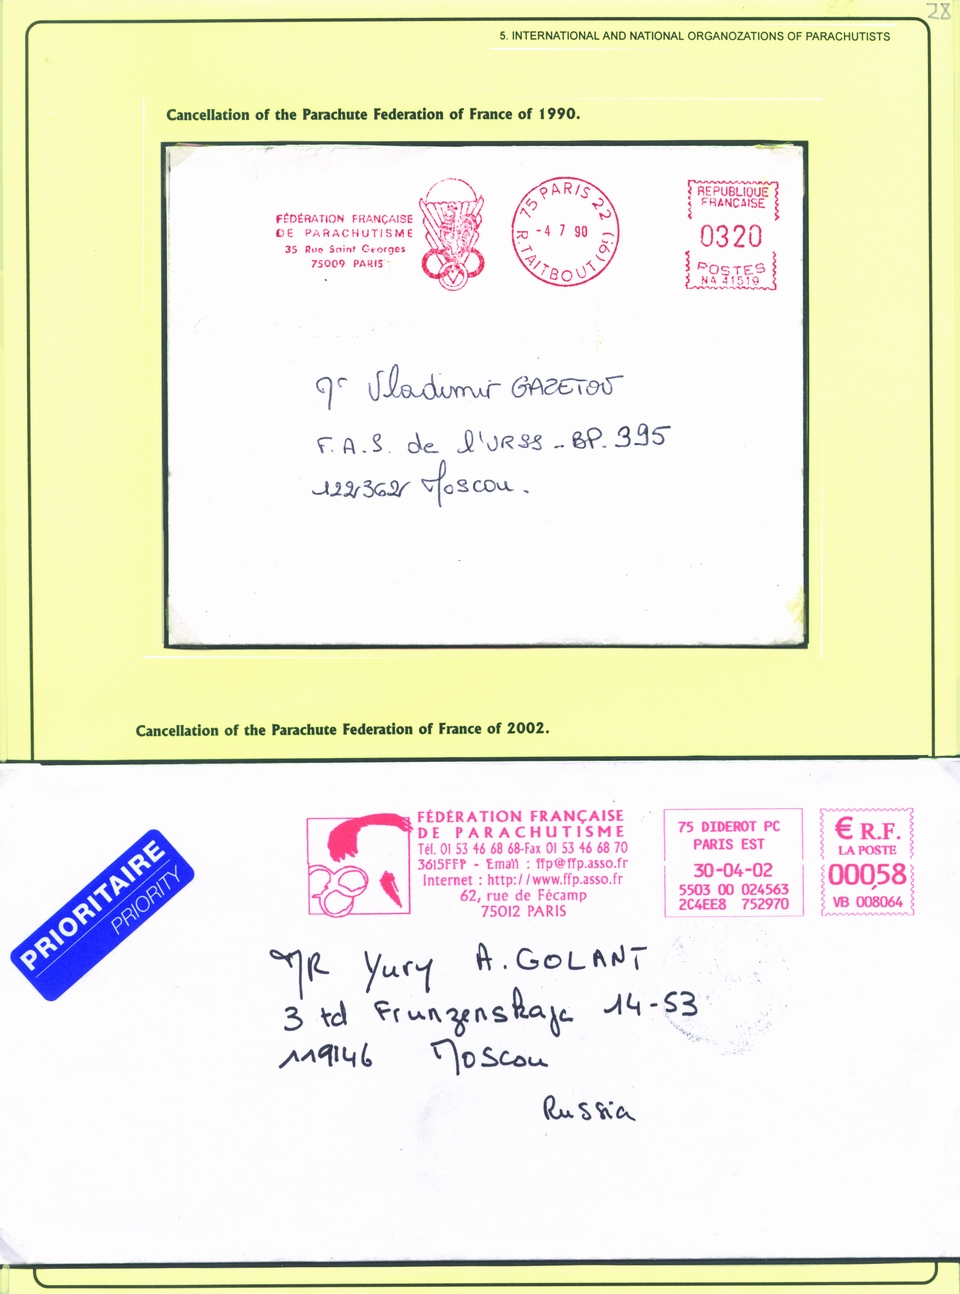 28
5. INTERNATIONAL AND NATIONAL ORGANOZATIONS OF PARACHUTISTS
Cancellation of the Parachute Federation of France of 1990.
FÉDÉRATION FRANÇAISE
DE PARACHUTISME
35 Rue Saint Georges
75009 PARIS
75 PARIS 22
-4 7 90
R.TAITBOUT (9E)
REPUBLIQUE
FRANÇAISE
0320
POSTES
NA 41519
Mr Vladimir GAZETOV
F.A.S. de l'URSS - BP. 395
122362 Moscou.
Cancellation of the Parachute Federation of France of 2002.
PRIORITAIRE
PRIORITY
FÉDÉRATION FRANÇAISE
DE PARACHUTISME
Tél. 01 53 46 68 68-Fax 01 53 46 68 70
3615FFP - Email : ffp@ffp.asso.fr
Internet : http://www.ffp.asso.fr
62, rue de Fécamp
75012 PARIS
75 DIDEROT PC
PARIS EST
30-04-02
5503 00 024563
2C4EE8 752970
€ R.F.
LA POSTE
000,58
VB 008064
MR Yury A. GOLANT
3 td Frunzenskaja 14-53
119146 Moscou
Russia